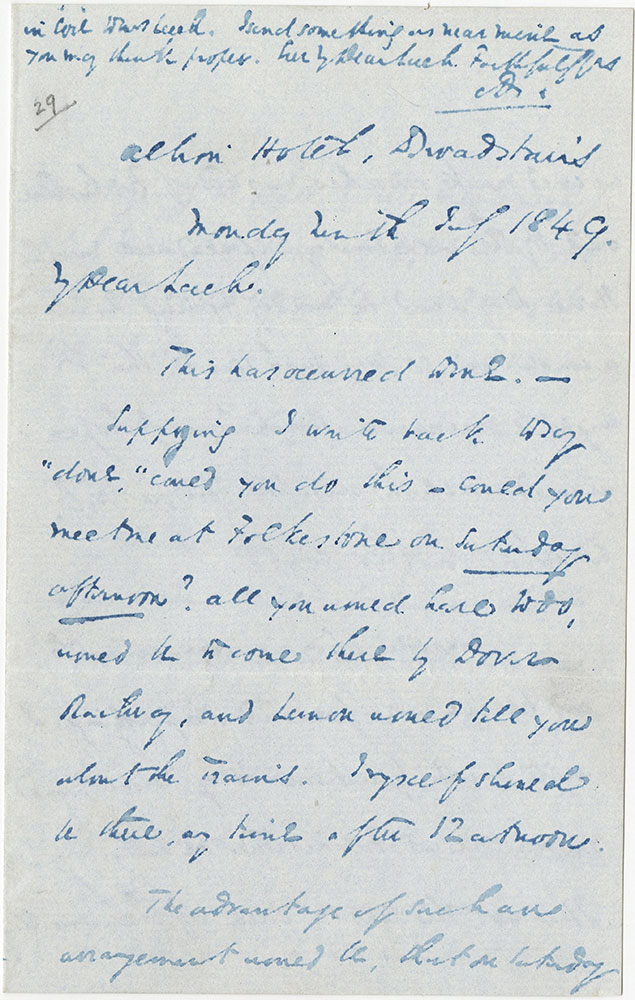 in Coil Whisteek. I send something as near mine as
you may think proper. Ever My Dear Leech. Faithfully Yrs
CD.
29
Albion Hotel, Broadstairs
Monday Ninth July 1849.
My Dear Leech.
This has occurred to me. —
Supposing I write back to say
"done," could you do this — could you
meet me at Folkestone on Saturday
afternoon? All you would have to do,
would be to come there by Dover
Railway, and Lemon would tell you
about the Trains. I myself should
be there, any time after 12 at noon.
The advantage of such an
arrangement would be, that on Saturday